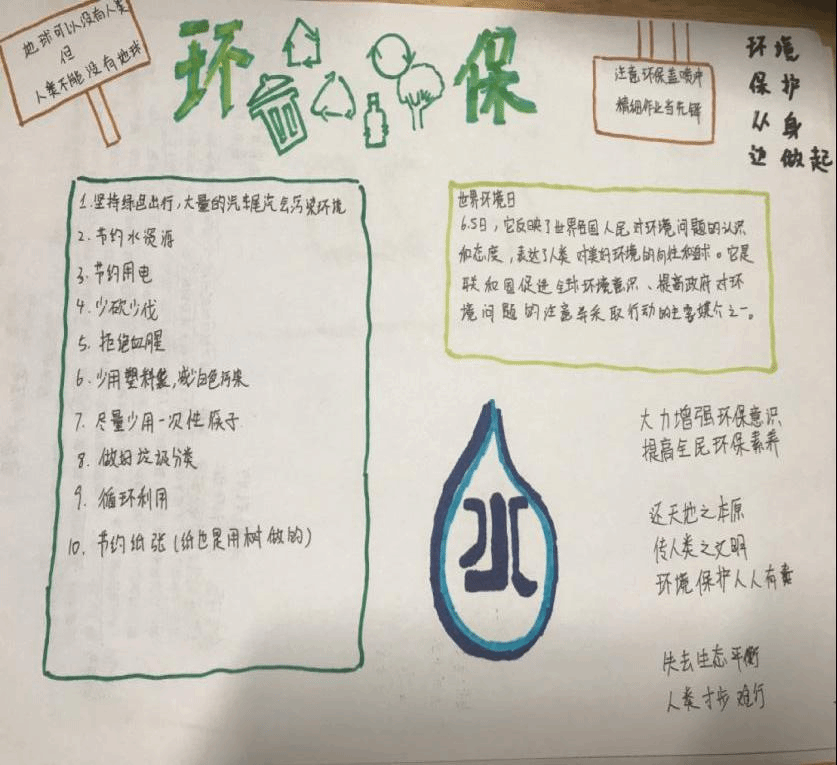 地球可以没有人类
但
人类不能没有地球
环
保
注意环保盖喷冲
精细作业当先锋
环境
保护
从身
边做起
1.坚持绿色出行,大量的汽车尾汽会污染环境
2.节约水资源
3.节约用电
4.少砍少伐
5.拒绝血腥
6.少用塑料袋,减少白色污染
7.尽量少用一次性筷子
8.做好垃圾分类
9.循环利用
10.节约纸张(纸也是用树做的)
世界环境日
6.5日,它反映了世界各国人民对环境问题的认识
和态度,表达了人类对美好环境的向往和追求。它是
联和国促进全球环境意识、提高政府对环
境问题的注意并采取行动的主要媒介之一。
水
大力增强环保意识
提高全民环保素养
还天地之本原
传人类之文明
环境保护人人有责
失去生态平衡
人类寸步难行